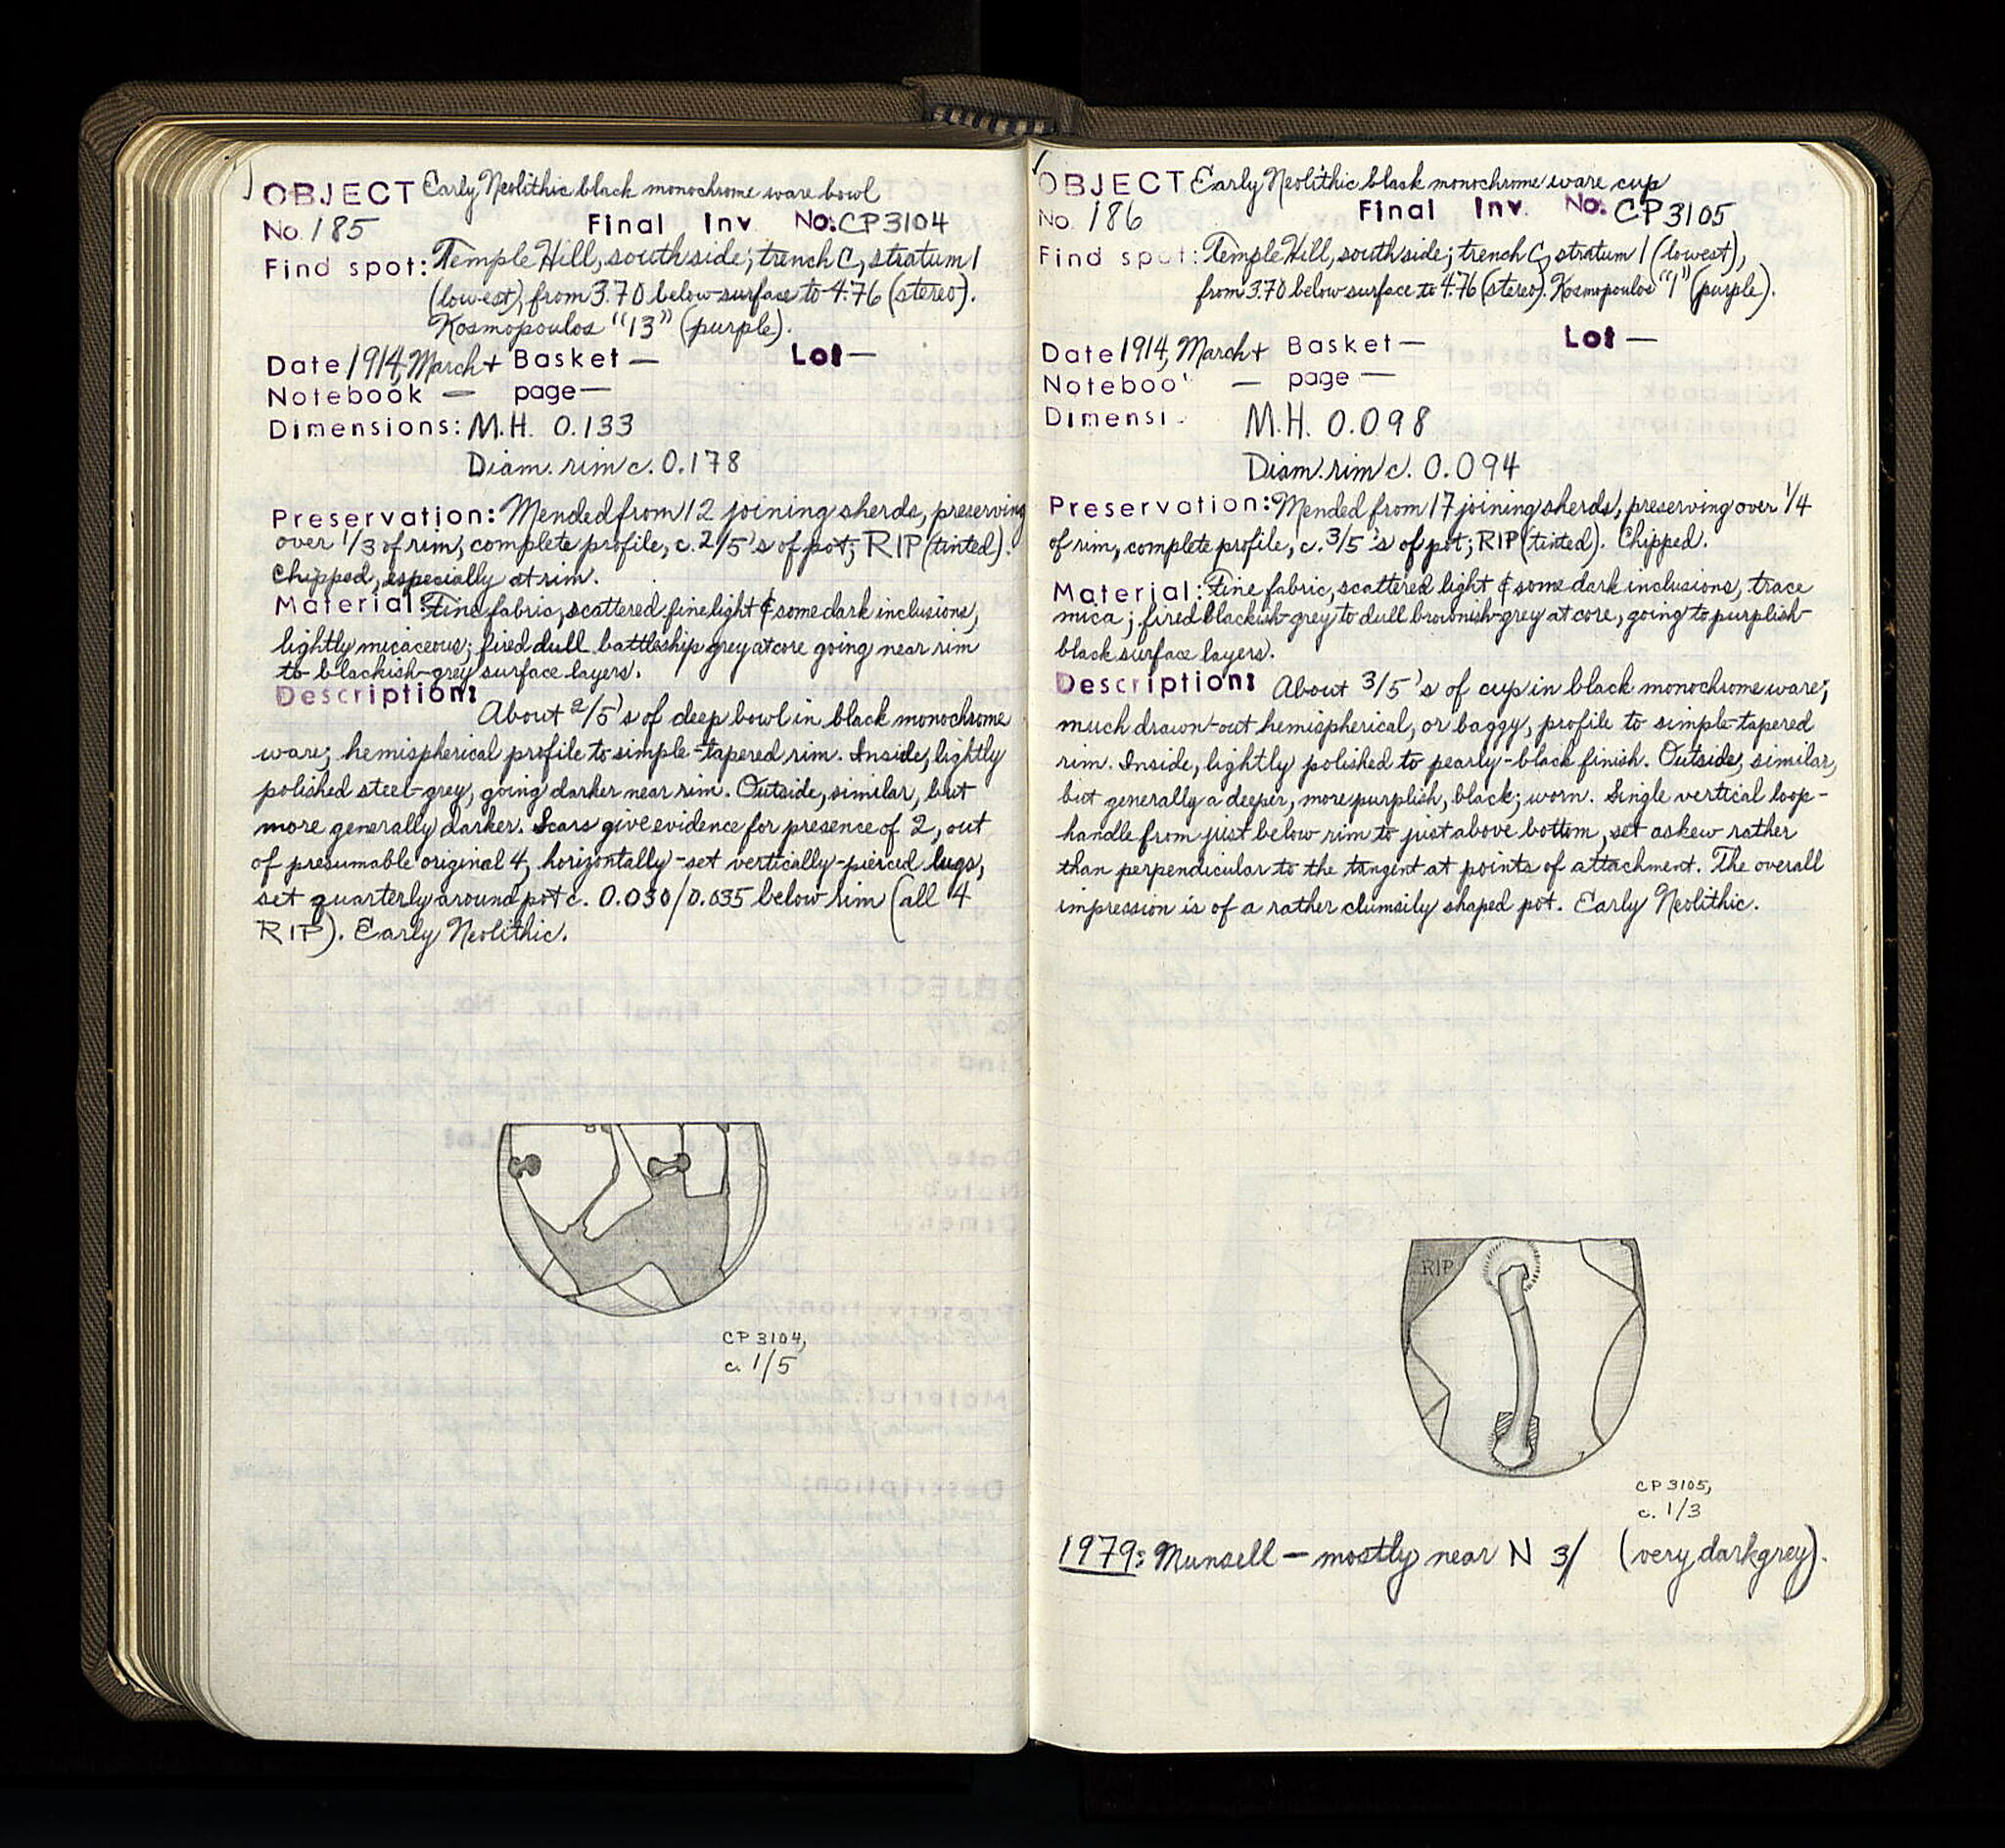 OBJECT Early Neolithic black monochrome ware bowl
No. 185 Final Inv. No. CP3104
Find spot: Temple Hill, south side; trench C, stratum 1
(lowest), from 3.70 below surface to 4.76 (stereo).
Kosmopoulos "13" (purple).
Date 1914, March + Basket — Lot —
Notebook — page —
Dimensions: M.H. 0.133
Diam. rim c. 0.178
Preservation: Mended from 12 joining sherds, preserving
over 1/3 of rim, complete profile, c. 2/5's of pot; RIP (tinted).
Chipped, especially at rim.
Material: Fine fabric, scattered fine light & some dark inclusions,
lightly micaceous; fired dull battleship grey at core going near rim
to blackish-grey surface layers.
Description:
About 2/5's of deep bowl in black monochrome
ware; hemispherical profile to simple-tapered rim. Inside, lightly
polished steel-grey, going darker near rim. Outside, similar, but
more generally darker. Scars give evidence for presence of 2, out
of presumable original 4, horizontally-set vertically-pierced lugs,
set quarterly around pot c. 0.030/0.035 below rim (all 4
RIP). Early Neolithic.
CP 3104,
c. 1/5
OBJECT Early Neolithic black monochrome ware cup
No. 186 Final Inv. No. CP3105
Find spot: Temple Hill, south side; trench C, stratum 1 (lowest),
from 3.70 below surface to 4.76 (stereo). Kosmopoulos "1" (purple).
Date 1914, March + Basket — Lot —
Noteboo — page —
Dimensi M.H. 0.098
Diam. rim c. 0.094
Preservation: Mended from 17 joining sherds, preserving over 1/4
of rim, complete profile, c. 3/5's of pot; RIP (tinted). Chipped.
Material: Fine fabric, scattered light & some dark inclusions, trace
mica; fired blackish-grey to dull brownish-grey at core, going to purplish-
black surface layers.
Description: About 3/5's of cup in black monochrome ware;
much drawn-out hemispherical, or baggy, profile to simple-tapered
rim. Inside, lightly polished to pearly-black finish. Outside, similar,
but generally a deeper, more purplish, black; worn. Single vertical loop-
handle from just below rim to just above bottom, set askew rather
than perpendicular to the tangent at points of attachment. The overall
impression is of a rather clumsily shaped pot. Early Neolithic.
RIP
CP 3105,
c. 1/3
1979: Munsell — mostly near N 3/ (very dark grey).